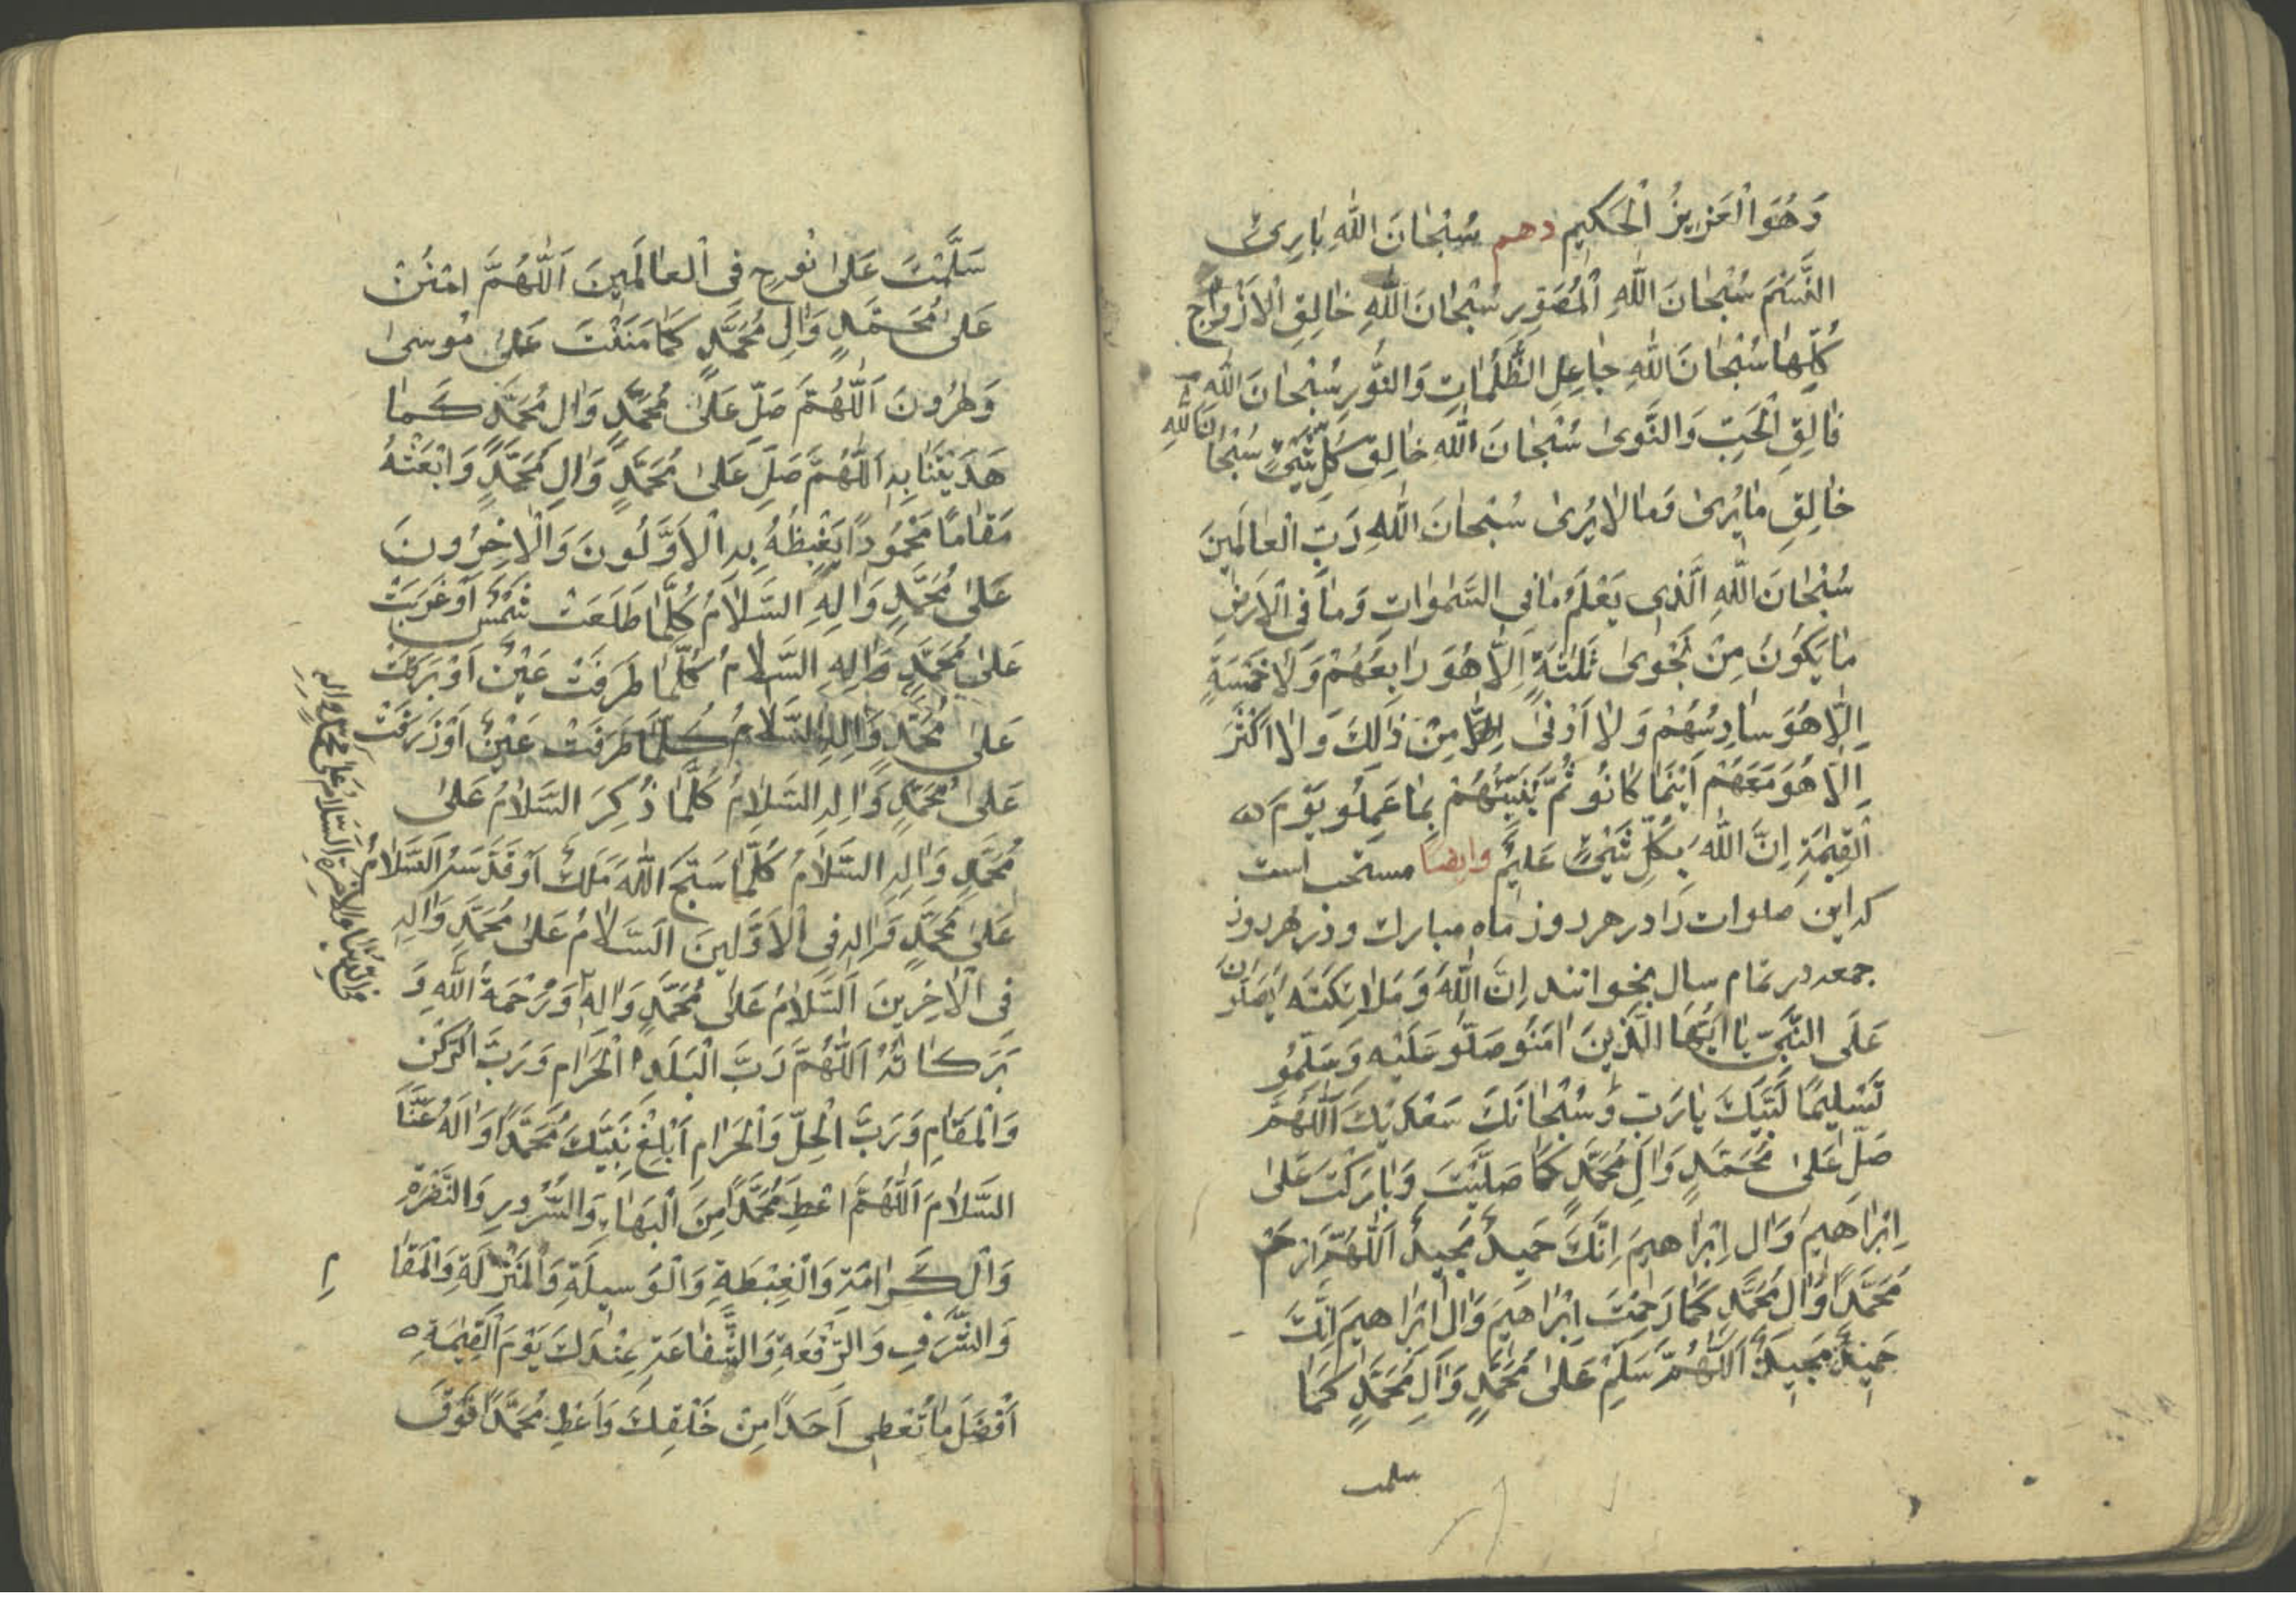 وَهُوَ الْعَزِيزُ الْحَكِيمِ دهم سُبْحَانَ اللّٰهِ بَارِئِ
النَّسَمِ سُبْحَانَ اللّٰهِ الْمُصَوِّرِ سُبْحَانَ اللّٰهِ خَالِقِ الْاَزْوَاجِ
كُلِّهَا سُبْحَانَ اللّٰهِ جَاعِلِ الظُّلُمَاتِ وَالنُّورِ سُبْحَانَ اللّٰهِ
فَالِقِ الْحَبِّ وَالنَّوىٰ سُبْحَانَ اللّٰهِ خَالِقِ كُلِّ شَيْءٍ سُبْحَانَ اللّٰهِ
خَالِقِ مَا يُرىٰ وَمَا لَا يُرىٰ سُبْحَانَ اللّٰهِ رَبِّ الْعَالَمِينَ
سُبْحَانَ اللّٰهِ الَّذِي يَعْلَمُ مَا فِي السَّمٰوَاتِ وَمَا فِي الْاَرْضِ
مَا يَكُونُ مِنْ نَجْوىٰ ثَلٰثَةٍ اِلَّا هُوَ رَابِعُهُمْ وَلَا خَمْسَةٍ
اِلَّا هُوَ سَادِسُهُمْ وَلَا اَدْنىٰ مِنْ ذٰلِكَ وَلَا اَكْثَرَ
اِلَّا هُوَ مَعَهُمْ اَيْنَمَا كَانُو ثُمَّ يُنَبِّئُهُمْ بِمَا عَمِلُو يَوْمَ
الْقِيٰمَةِ اِنَّ اللّٰهَ بِكُلِّ شَيْءٍ عَلِيمٌ وايضا مستحب است
كه اين صلوات را در هر روز ماه مبارك و در هر روز
جمعه در تمام سال بخوانند اِنَّ اللّٰهَ وَمَلَائِكَتَه يُصَلُّونَ
عَلَى النَّبِيِّ يَا اَيُّهَا الَّذِينَ اٰمَنُو صَلُّو عَلَيْهِ وَسَلِّمُو
تَسْلِيمًا لَبَّيْكَ يَا رَبِّ وَسُبْحَانَكَ سَعْدَيْكَ اَللّٰهُمَّ
صَلِّ عَلىٰ مُحَمَّدٍ وَاٰلِ مُحَمَّدٍ كَمَا صَلَّيْتَ وَبَارَكْتَ عَلىٰ
اِبْرَاهِيمَ وَاٰلِ اِبْرَاهِيمَ اِنَّكَ حَمِيدٌ مَجِيدٌ اَللّٰهُمَّ ارْحَمْ
مُحَمَّدًا وَاٰلَ مُحَمَّدٍ كَمَا رَحِمْتَ اِبْرَاهِيمَ وَاٰلَ اِبْرَاهِيمَ اِنَّكَ
حَمِيدٌ مَجِيدٌ اَللّٰهُمَّ سَلِّمْ عَلىٰ مُحَمَّدٍ وَاٰلِ مُحَمَّدٍ كَمَا
سلمت
سَلَّمْتَ عَلىٰ نُوحٍ فِي الْعَالَمِينَ اَللّٰهُمَّ امْنُنْ
عَلىٰ مُحَمَّدٍ وَاٰلِ مُحَمَّدٍ كَمَا مَنَنْتَ عَلىٰ مُوسىٰ
وَهٰرُونَ اَللّٰهُمَّ صَلِّ عَلىٰ مُحَمَّدٍ وَاٰلِ مُحَمَّدٍ كَمَا
هَدَيْتَنَا بِهِ اَللّٰهُمَّ صَلِّ عَلىٰ مُحَمَّدٍ وَاٰلِ مُحَمَّدٍ وَابْعَثْهُ
مَقَامًا مَحْمُودًا يَغْبِطُهُ بِهِ الْاَوَّلُونَ وَالْاٰخِرُونَ
عَلىٰ مُحَمَّدٍ وَاٰلِهِ السَّلَامُ كُلَّمَا طَلَعَتْ شَمْسٌ اَوْ غَرَبَتْ
عَلىٰ مُحَمَّدٍ وَاٰلِهِ السَّلَامُ كُلَّمَا طَرَفَتْ عَيْنٌ اَوْ بَرَقَتْ
عَلىٰ مُحَمَّدٍ وَاٰلِهِ السَّلَامُ كُلَّمَا طَرَفَتْ عَيْنٌ اَوْ ذَرَفَتْ
عَلىٰ مُحَمَّدٍ وَاٰلِهِ السَّلَامُ كُلَّمَا ذُكِرَ السَّلَامُ عَلىٰ
مُحَمَّدٍ وَاٰلِهِ السَّلَامُ كُلَّمَا سَبَّحَ اللّٰهَ مَلَكٌ اَوْ قَدَّسَهُ اَلسَّلَامُ
عَلىٰ مُحَمَّدٍ وَاٰلِهِ فِي الْاَوَّلِينَ اَلسَّلَامُ عَلىٰ مُحَمَّدٍ وَاٰلِهِ
فِي الْاٰخِرِينَ اَلسَّلَامُ عَلىٰ مُحَمَّدٍ وَاٰلِهِ وَرَحْمَةُ اللّٰهِ وَ
بَرَكَاتُهُ اَللّٰهُمَّ رَبَّ الْبَلَدِ الْحَرَامِ وَرَبَّ الرُّكْنِ
وَالْمَقَامِ وَرَبَّ الْحِلِّ وَالْحَرَامِ اَبْلِغْ نَبِيَّكَ مُحَمَّدًا وَاٰلَهُ عَنَّا
السَّلَامَ اَللّٰهُمَّ اعْطِ مُحَمَّدًا مِنَ الْبَهَاءِ وَالسُّرُورِ وَالنَّضْرَةِ
وَالْكَرَامَةِ وَالْغِبْطَةِ وَالْوَسِيلَةِ وَالْمَنْزِلَةِ وَالْمَقَا مِ
وَالشَّرَفِ وَالرِّفْعَةِ وَالشَّفَاعَةِ عِنْدَكَ يَوْمَ الْقِيٰمَةِ
اَفْضَلَ مَا تُعْطِي اَحَدًا مِنْ خَلْقِكَ وَاَعْطِ مُحَمَّدًا فَوْقَ
فِي الدُّنْيَا وَالْاٰخِرَةِ اَلسَّلَامُ عَلىٰ مُحَمَّدٍ وَاٰلِهِ